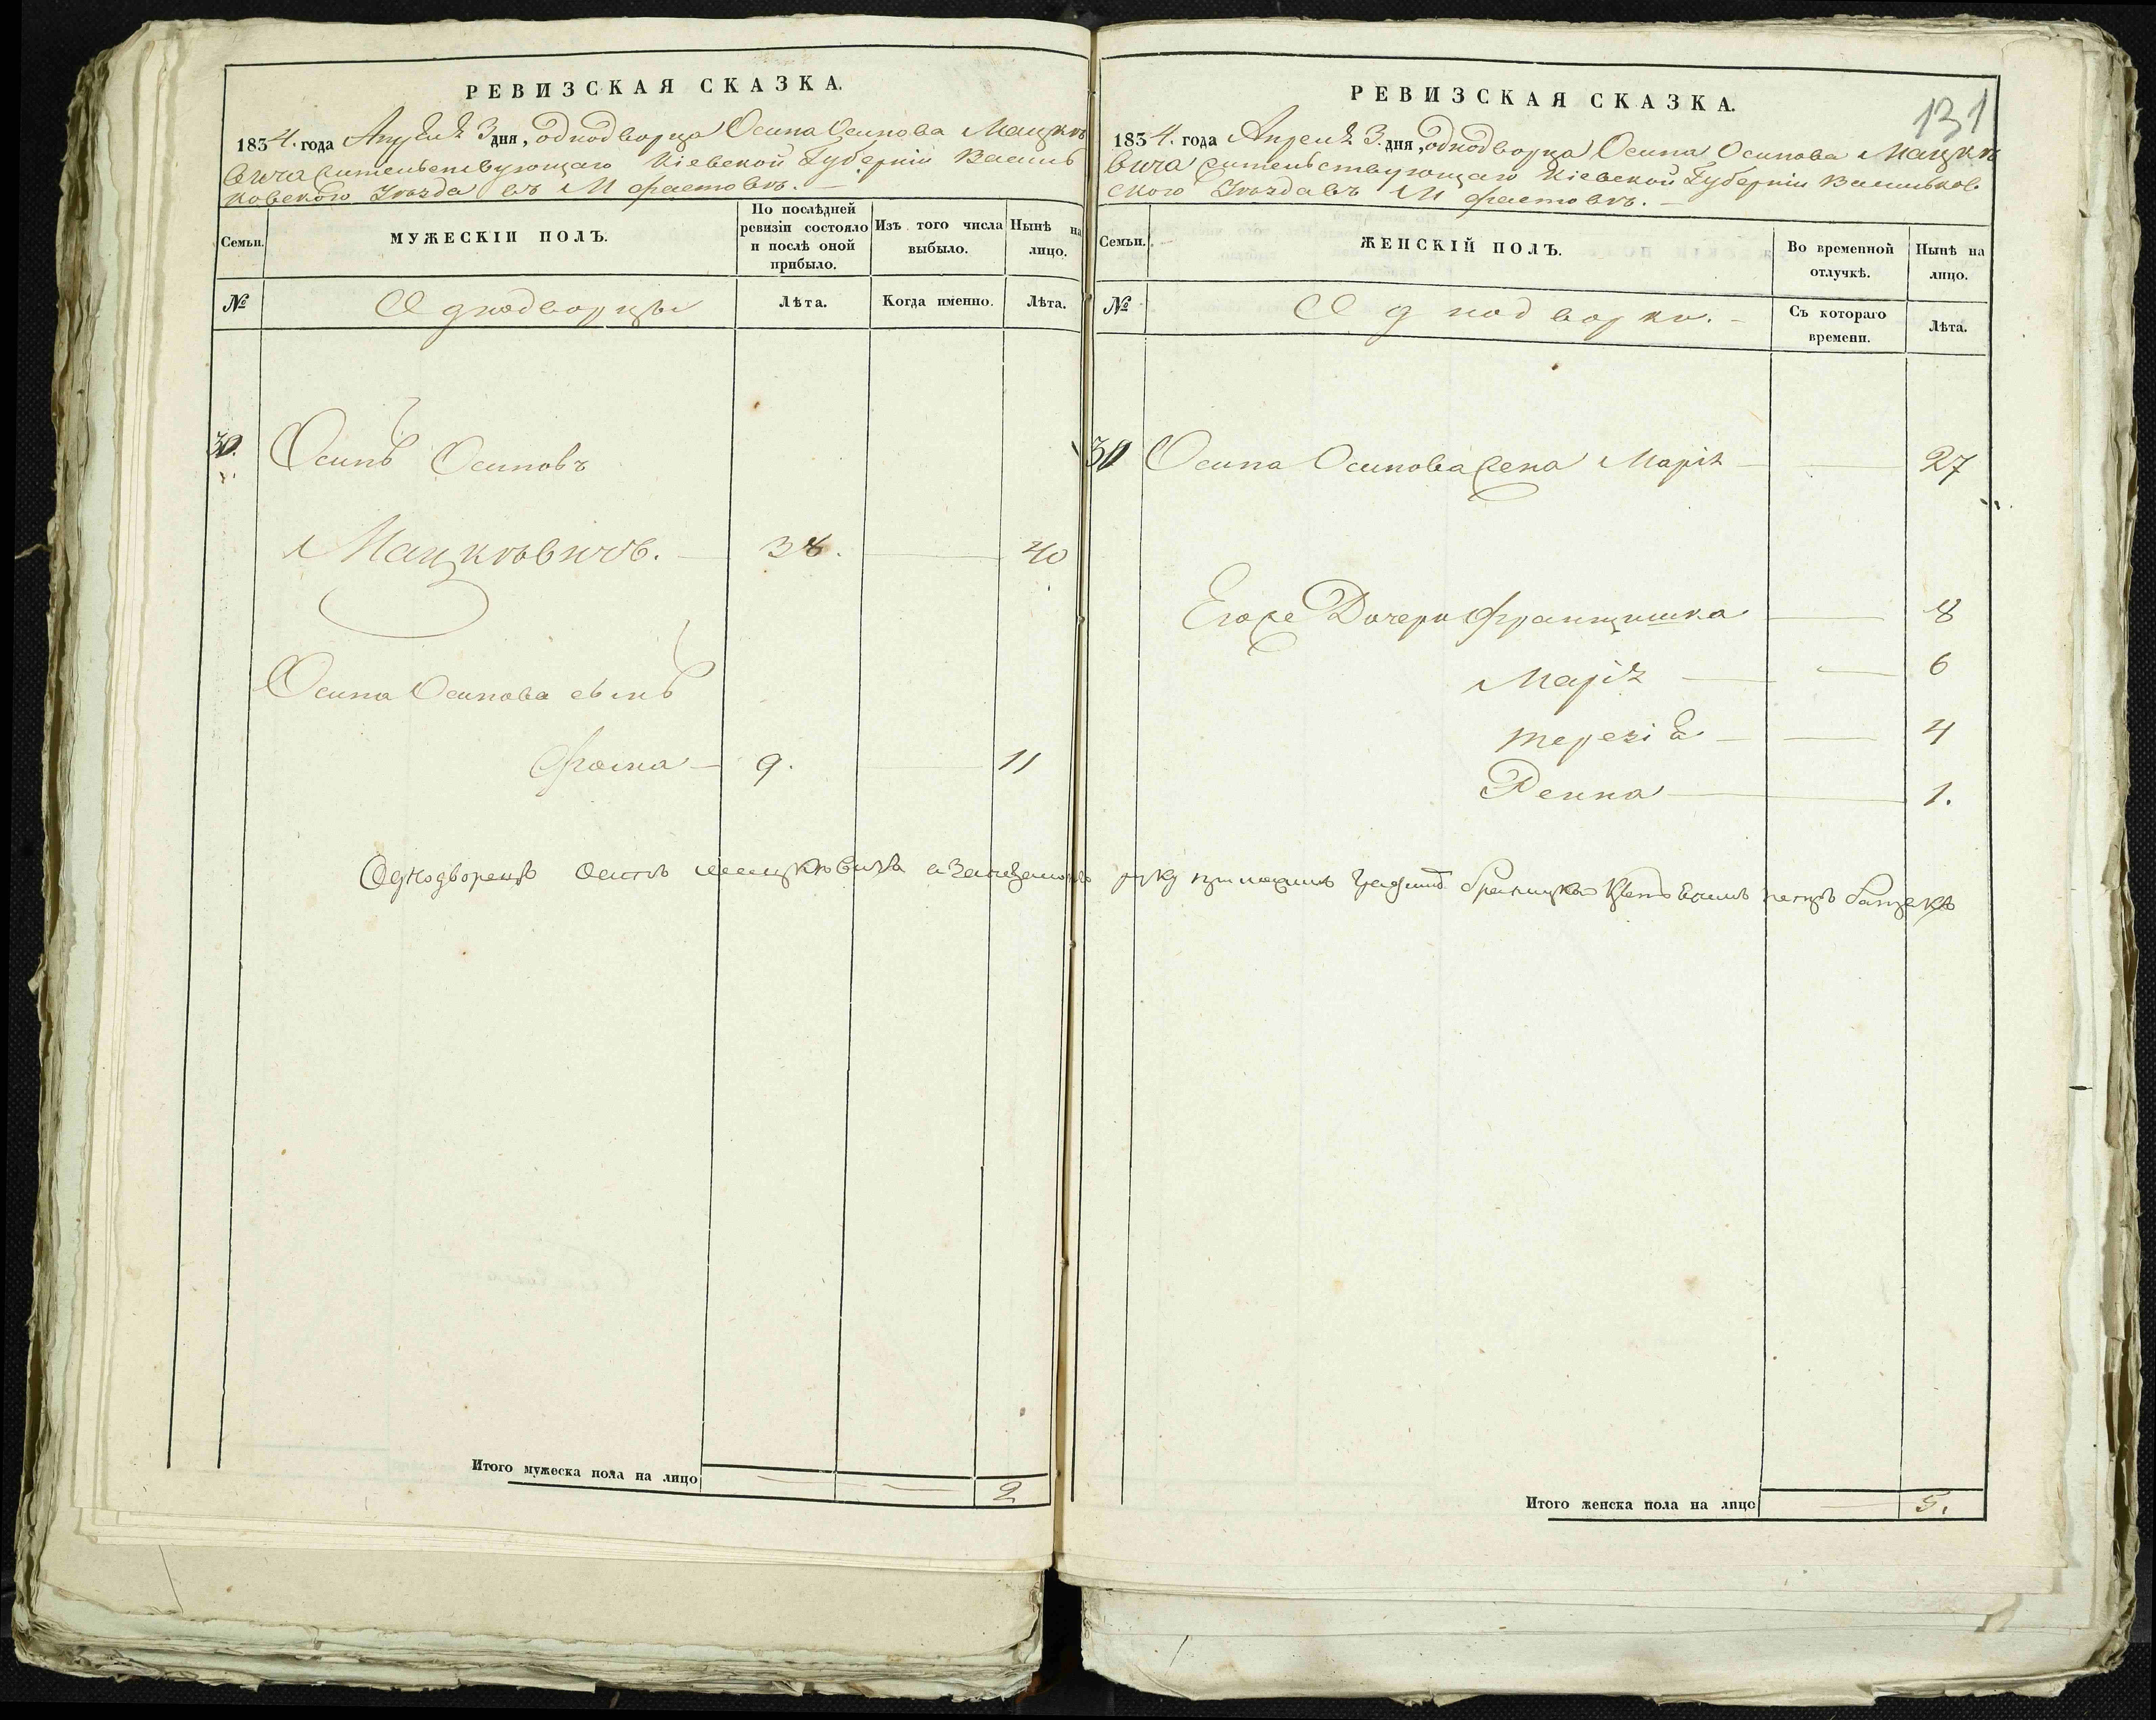 РЕВИЗСКАЯ СКАЗКА.
1834. года Апреля 3 дня, однодворца Осипа Осипова Мацкѣ
вича жительствующаго Кіевской Губерніи Василь
ковского Уѣзда въ М Фастовѣ.
Семьи.
МУЖЕСКІЙ ПОЛЪ.
По послѣдней ревизіи состояло и послѣ оной прибыло.
Изъ того числа выбыло.
Нынѣ на лицо.
№
Однодворцы
Лѣта.
Когда именно.
Лѣта.
30. Осипъ Осиповъ
Мацкѣвичъ. 38. 40
Осипа Осипова сынъ
Фома 9. 11
Однодворецъ Осипъ Мацкѣвичъ а
Итого мужеска пола на лицо 2
131
РЕВИЗСКАЯ СКАЗКА.
1834. года Апреля 3. дня, однодворца Осипа Осипова Мацкѣ
вича жительствующаго Кіевской Губерніи Васильков
ского Уѣзда въ М Фастовѣ.
Семьи.
ЖЕНСКІЙ ПОЛЪ.
Во временной отлучкѣ.
Нынѣ на лицо.
№
Однодворки.
Съ котораго времени.
Лѣта.
30 Осипа Осипова жена Марія 27
Егоже Дочери Францишка 8
Марія 6
Терезія 4
1.
руку
Итого женска пола на лицо 5.